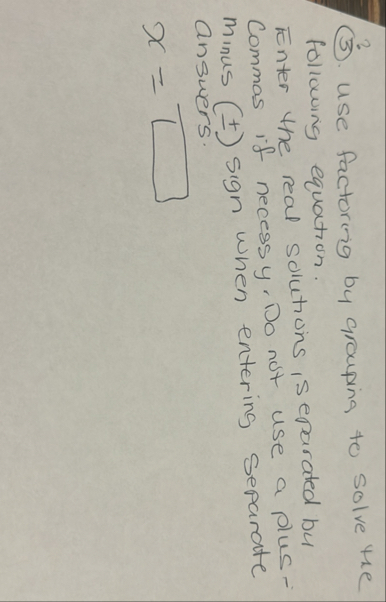 ?
③. use factoring by grouping to solve the
following equation.
Enter the real solutions, separated by
Commas if necessy. Do not use a plus-
minus (±) sign when entering separate
answers.
x =